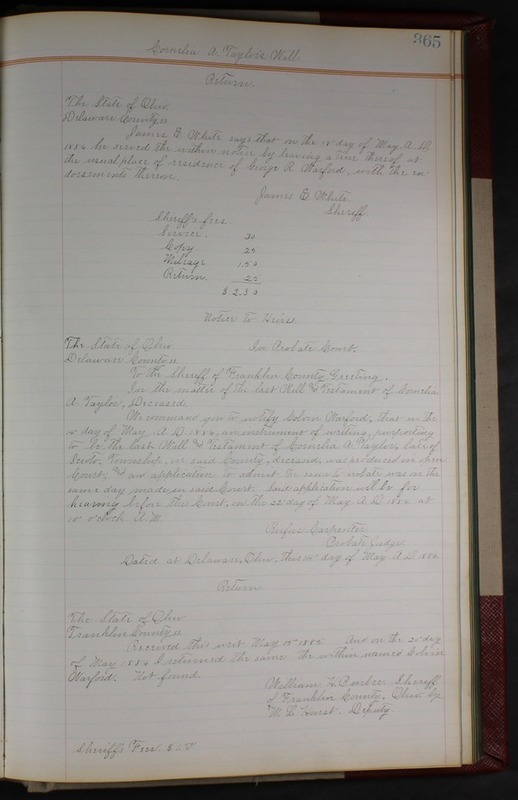 365
Cornelia A. Taylor's Will.
Return.
The State of Ohio.
Delaware County ss
James E. White says that on the day of May A.D.
1884 he served the within notice by leaving a true thereof at
the usual place of residence of George R. Warford, with the en
dorsements thereon.
James E. White
Sheriff.
Sheriff's fees.
Service. 30
Copy 25
Mileage 1.50
Return. 25
$ 2.30
Notice to Heirs.
The State of Ohio In Probate Court.
Delaware County ss
To the Sheriff of Franklin County Greeting.
In the matter of the last Will & Testament of Cornelia
A. Taylor, Deceased.
We command you to notify Solvin Warford, that on the
day of May A.D. 1884, an instrument of writing, purporting
to be the last Will & Testament of Cornelia A. Taylor, late of
Scioto, Township, in said County, deceased, was produced in open
Court, and an application to admit the same to probate was on the
same day made in said Court. Said application will be for
hearing before this Court, on the 22 day of May A.D. 1884 at
10 o'clock A.M.
Rufus Carpenter
Probate Judge
Dated at Delaware, Ohio, this day of May A.D. 1884
Return
The State of Ohio
Franklin County ss
Received this writ May 1884 And on the 20 day
of May 1884 I returned the same the within named Solvin
Warford. Not found.
William H. Sheriff
of Franklin County, Ohio. by
W. L. Hurst. Deputy
Sheriff's Fees. $